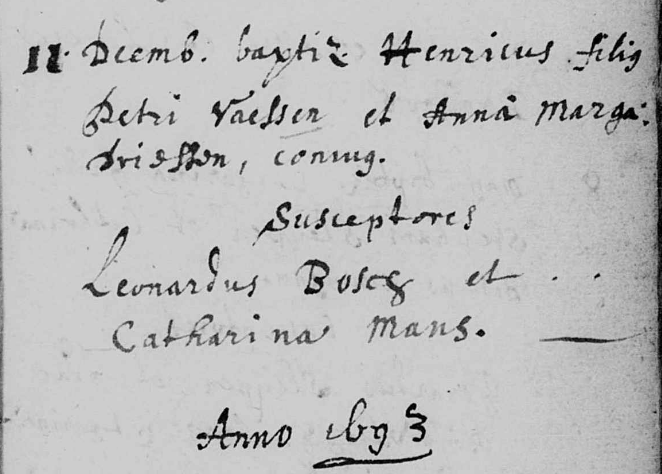 11. Decemb. baptiz. Henricus filig
Petri Vaessen et Anna Marga:
driessen, coniug.
Susceptores
Leonardus Bosch et . .
Catharina Mans. —
Anno 1693